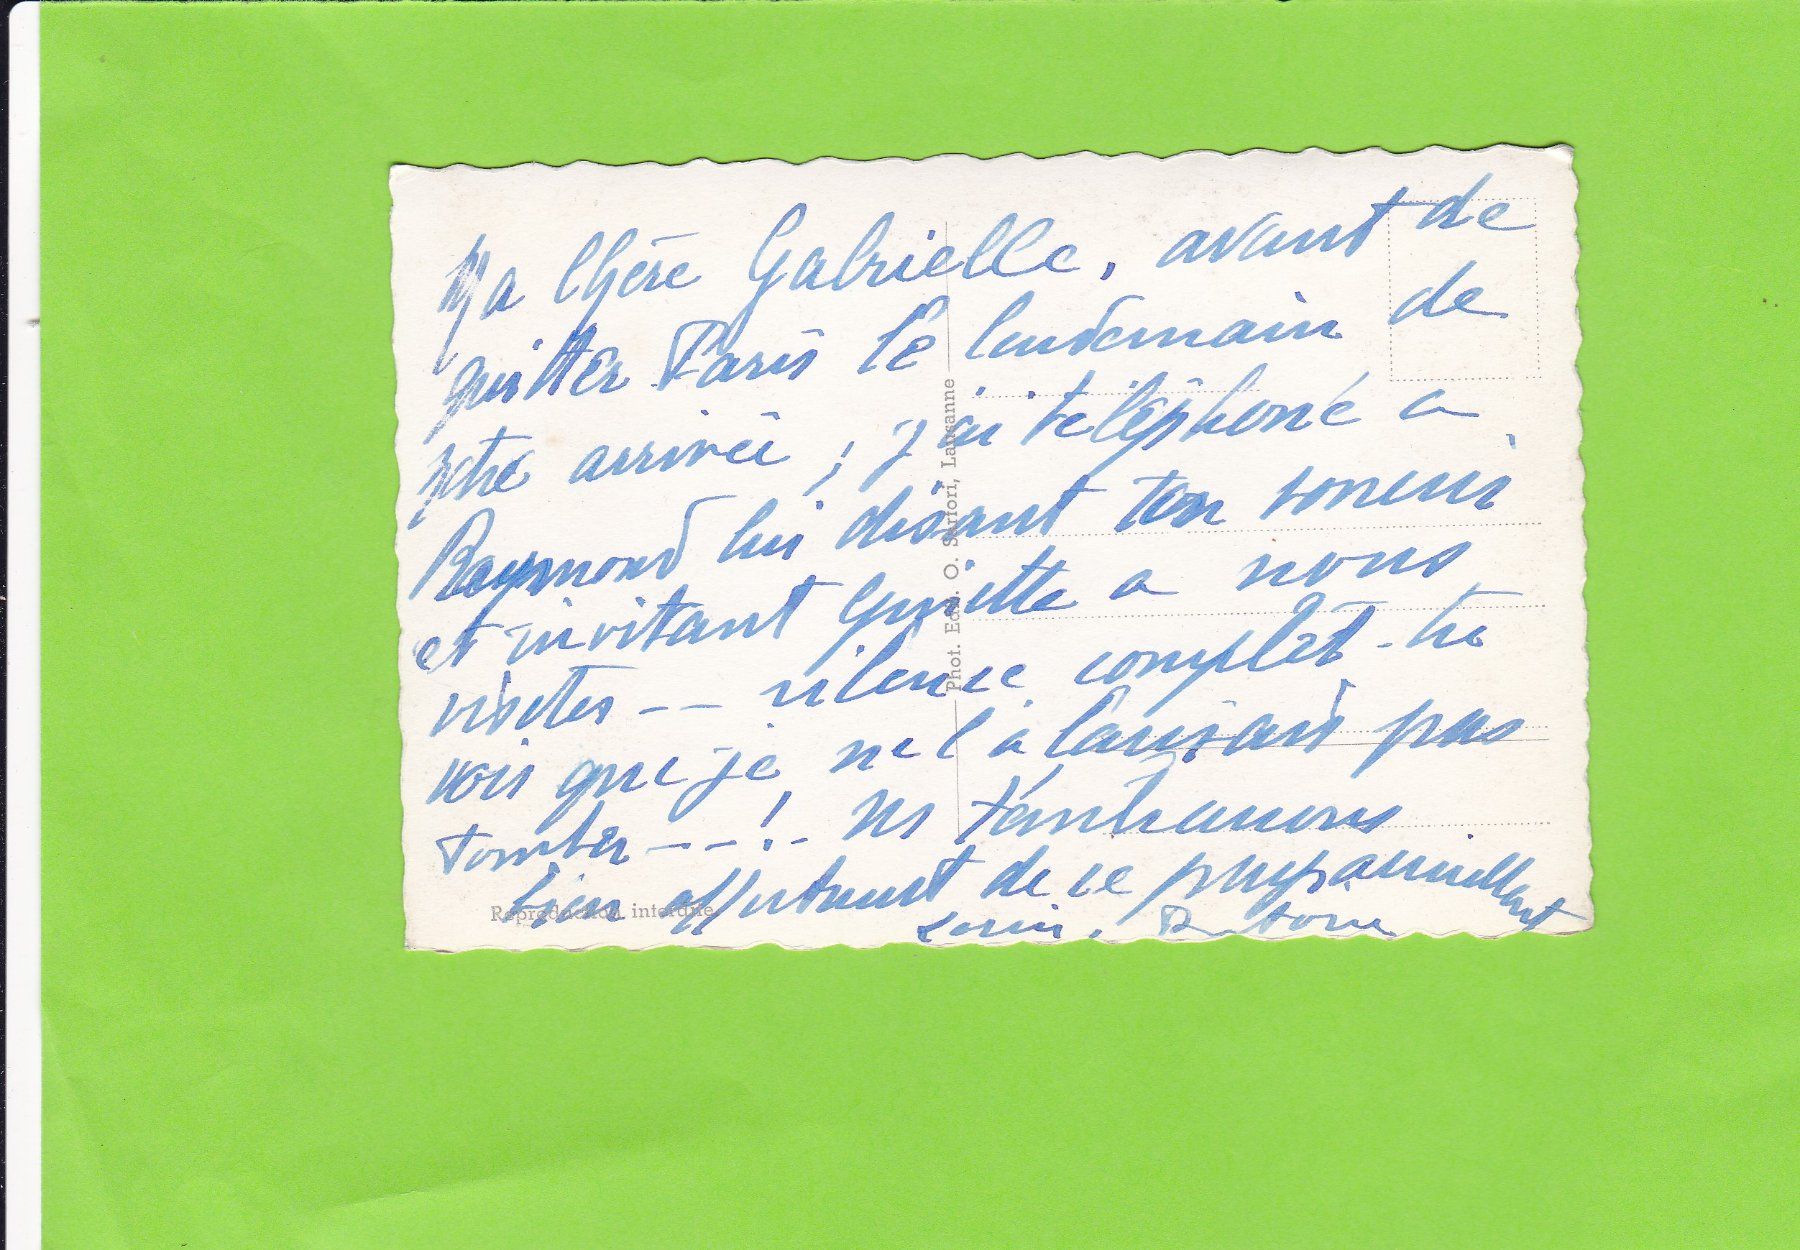 Ma Chère Gabrielle, avant de
quitter Paris le lendemain de
ntre arrivée, j'ai téléphoné a
Raymond lui disant ton
et invitant Ginette a nous
visiter -- silence complet - tu
vois que je ne l'a laissais pas
tomber ---! - ns t'embrassons
bien affectueust de ce pays
Phot. Edit. O. Sartori, Lausanne
Reproduction interdite.